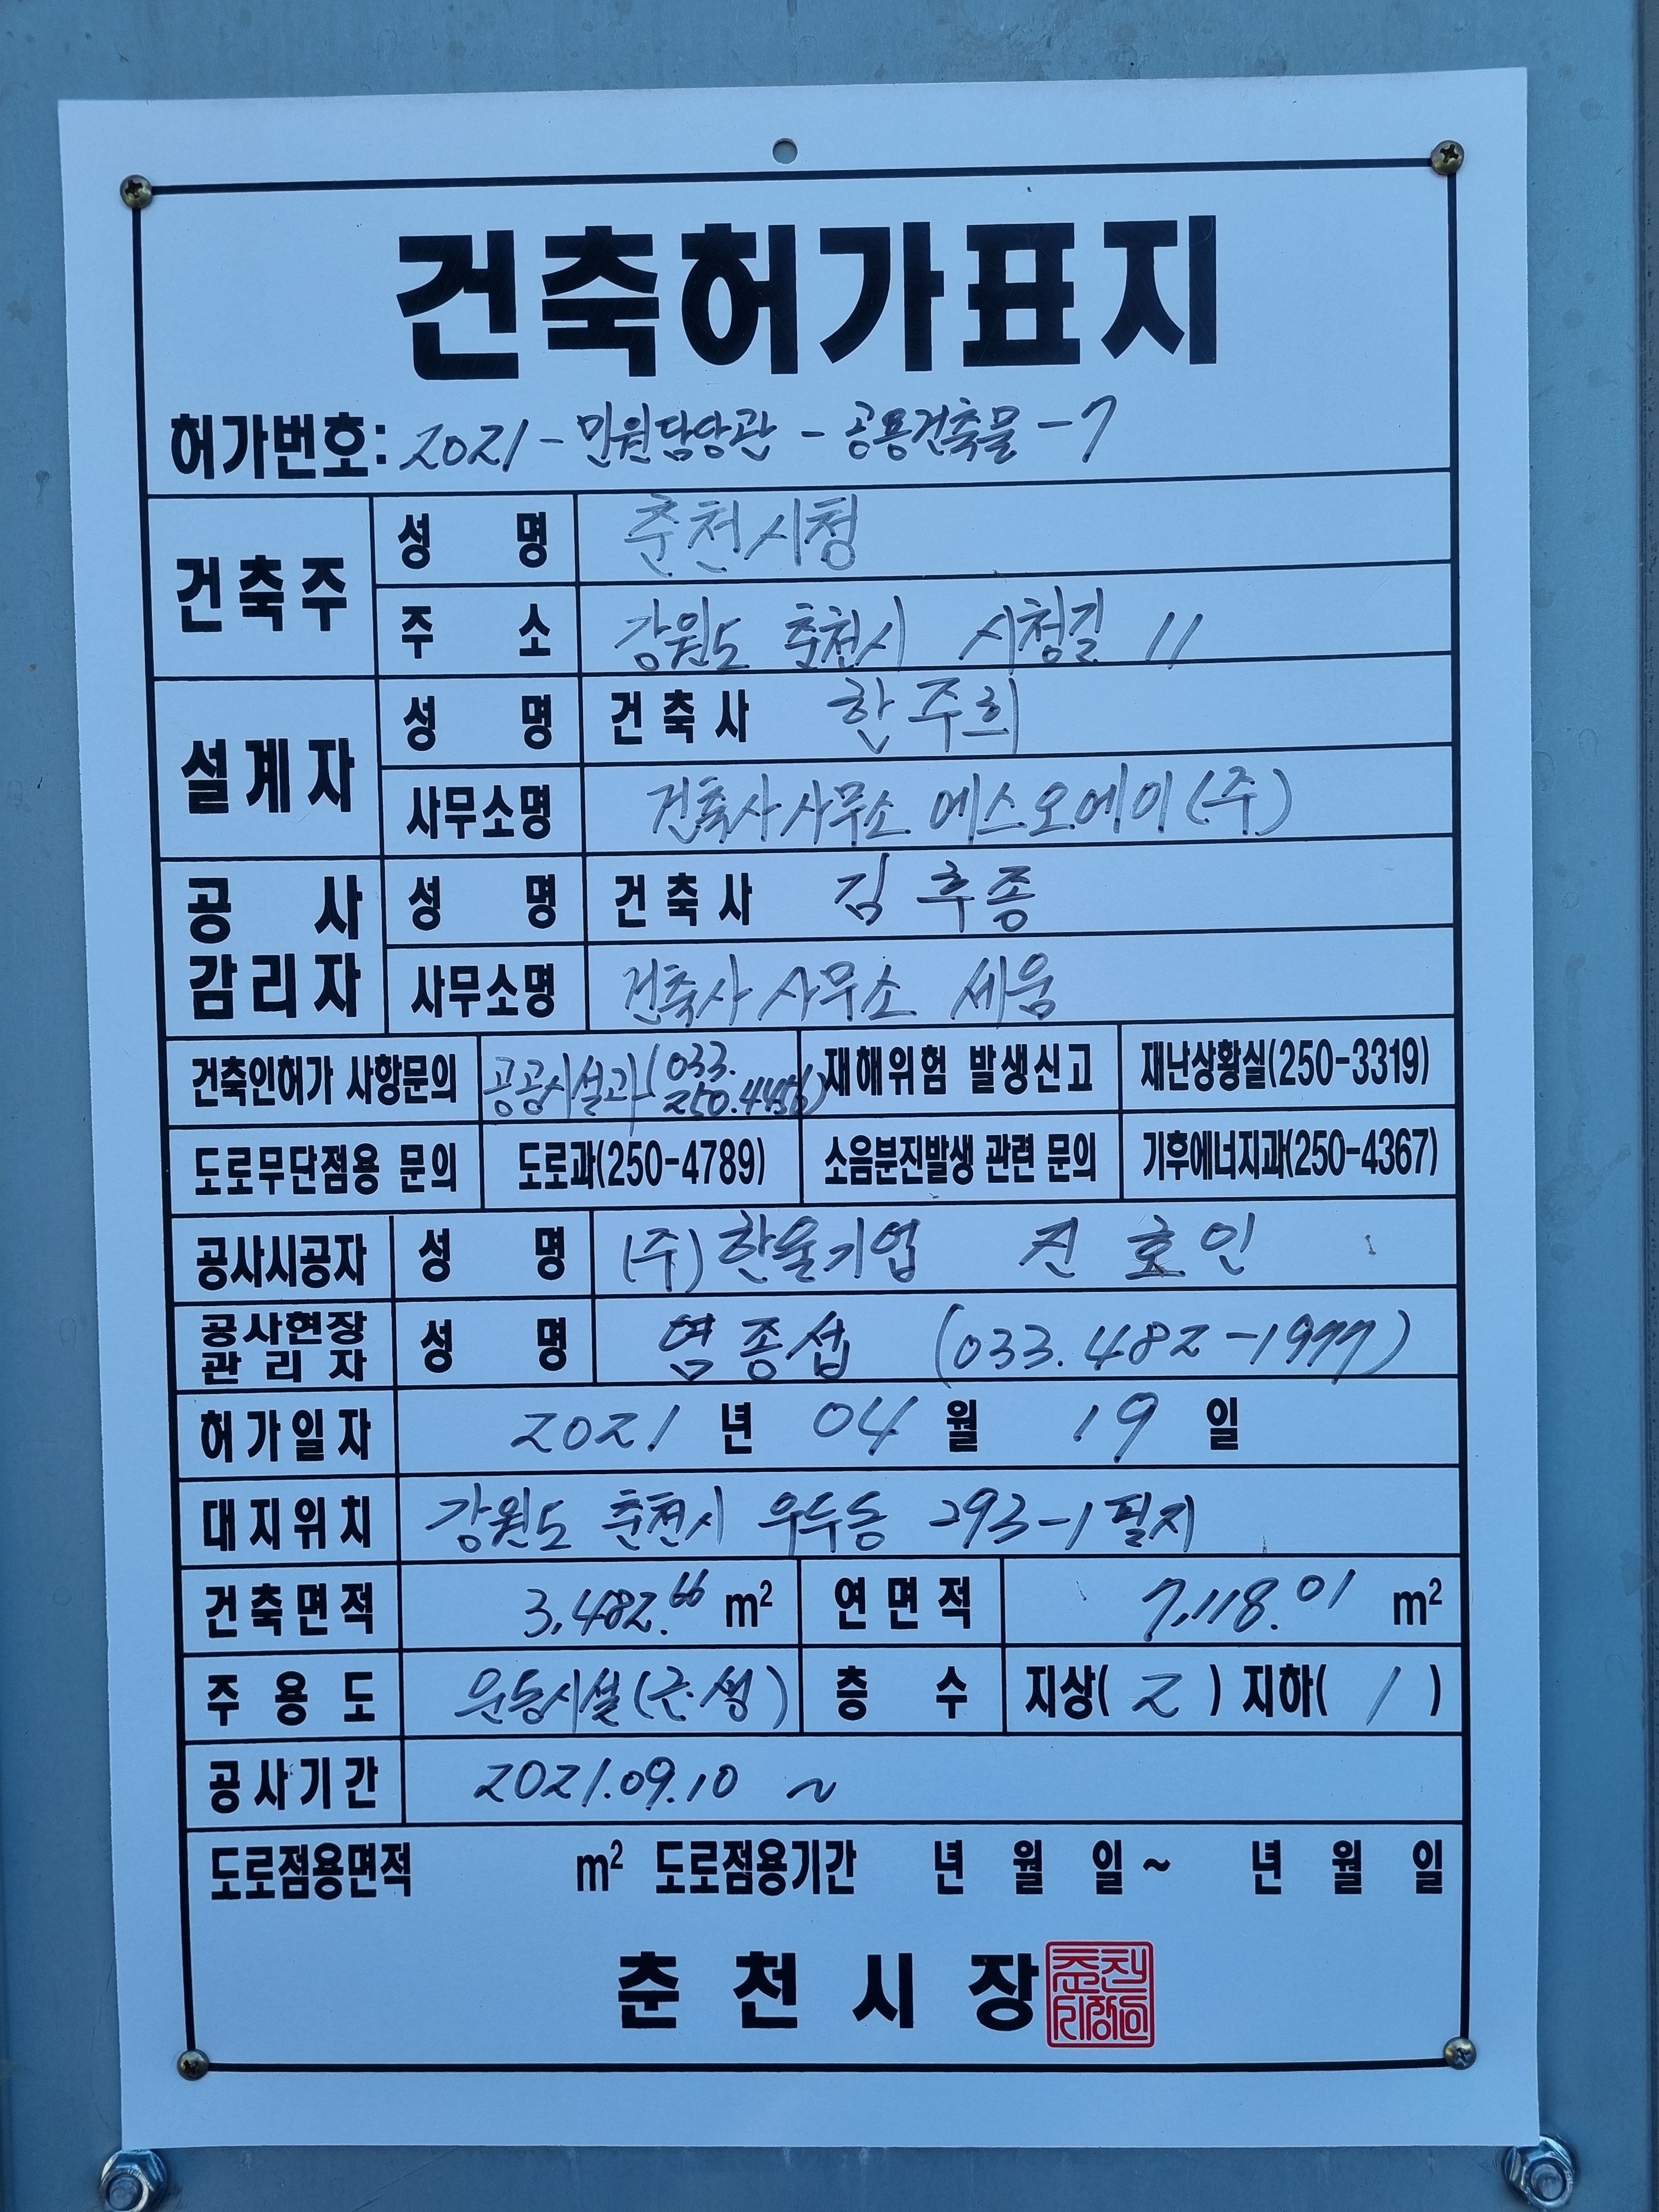 건축허가표지
허가번호: 2021-민원담당관-공용건축물-7
건축주 성명 춘천시청
주소 강원도 춘천시 시청길 11
설계자 성명 건축사 한주희
사무소명 건축사사무소 에스오에이(주)
공사감리자 성명 건축사 김후종
사무소명 건축사사무소 세움
건축인허가 사항문의 공공시설과(033.250.4456) 재해위험 발생신고 재난상황실(250-3319)
도로무단점용 문의 도로과(250-4789) 소음분진발생 관련 문의 기후에너지과(250-4367)
공사시공자 성명 (주)한울기업 진호인
공사현장관리자 성명 염종섭 (033.482-1977)
허가일자 2021년 04월 19일
대지위치 강원도 춘천시 우두동 293-1필지
건축면적 3,482.66 m² 연면적 7,118.01 m²
주용도 운동시설(근.생) 층수 지상(2) 지하(1)
공사기간 2021.09.10 ~
도로점용면적 m² 도로점용기간 년 월 일~ 년 월 일
춘천시장